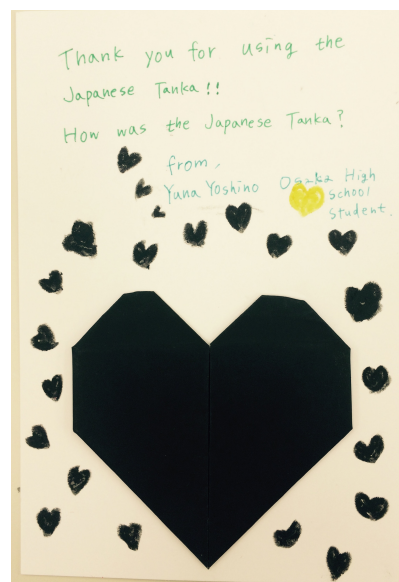 Thank you for using the
Japanese Tanka!!
How was the Japanese Tanka?
from,
Yuna Yoshino Osaka High
school
student.